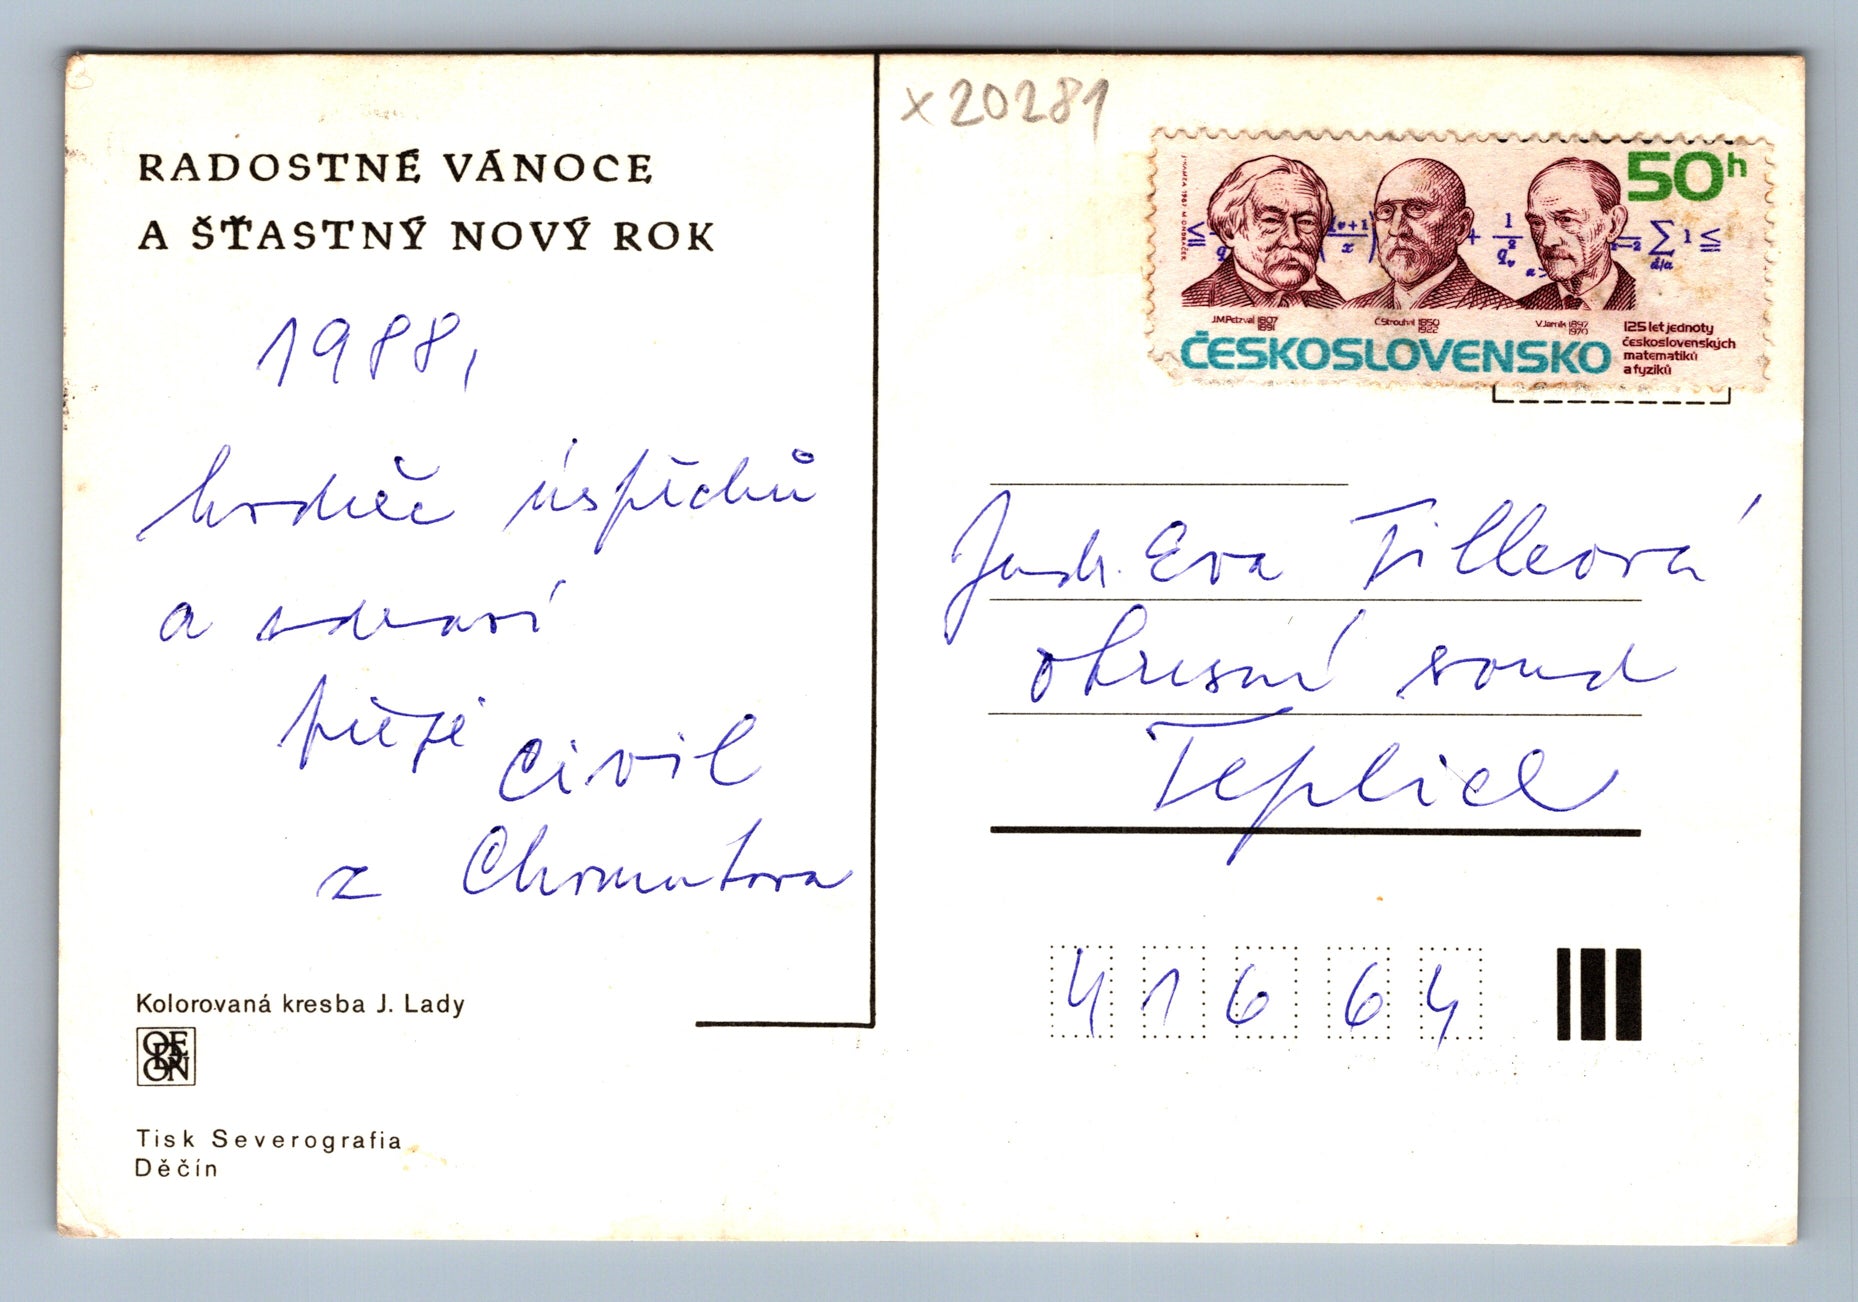 RADOSTNÉ VÁNOCE
A ŠŤASTNÝ NOVÝ ROK
1988,
hodně úspěchů
a zdraví
přeje Civil
z Chomutova
Kolorovaná kresba J. Lady
ODEON
Tisk Severografia
Děčín
x20281
50h
J.M.Petzval 1807 1891
Č.Strouhal 1850 1922
V.Jarník 1897 1970
ČESKOSLOVENSKO
125 let jednoty
československých
matematiků
a fyziků
Judr. Eva Tilleová
okresní soud
Teplice
41664